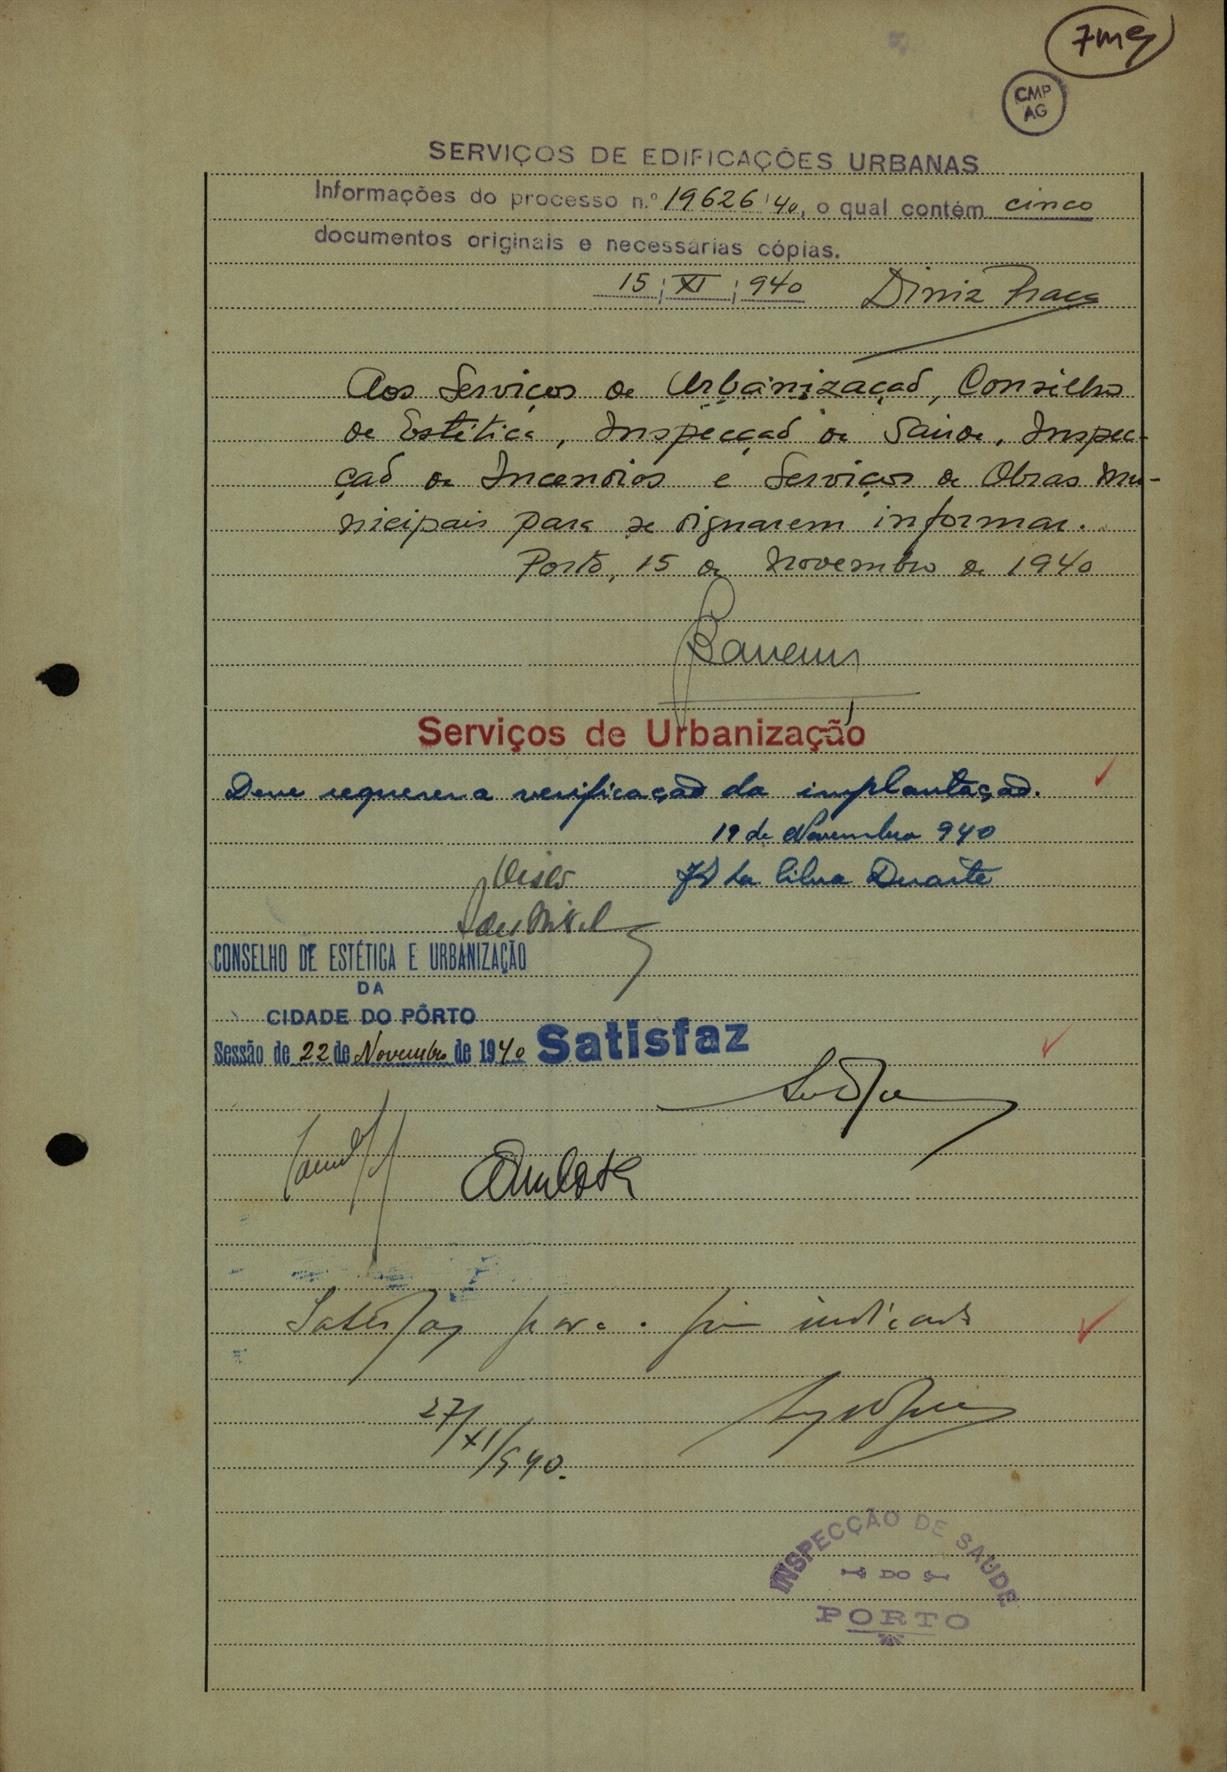 7mg
CMP
AG
SERVIÇOS DE EDIFICAÇÕES URBANAS
Informações do processo n.º 19626/40, o qual contém cinco
documentos originais e necessárias cópias.
15 | XI | 940 Diniz
Aos Serviços de Urbanização, Conselho
de Estética, Inspecção de Saúde, Inspec-
ção de Incendios e Serviços de Obras Mu-
nicipais para se dignarem informar.
Porto, 15 de Novembro de 1940
Serviços de Urbanização
Deve requerer a verificação da implantação.
19 de Novembro 940
da Silva Duarte
Visto
CONSELHO DE ESTÉTICA E URBANIZAÇÃO
DA
CIDADE DO PÔRTO
Sessão de 22 de Novembro de 1940 Satisfaz
Satisfaz para o fim indicado
27/XI/940.
INSPECÇÃO DE SAUDE
DO
PORTO